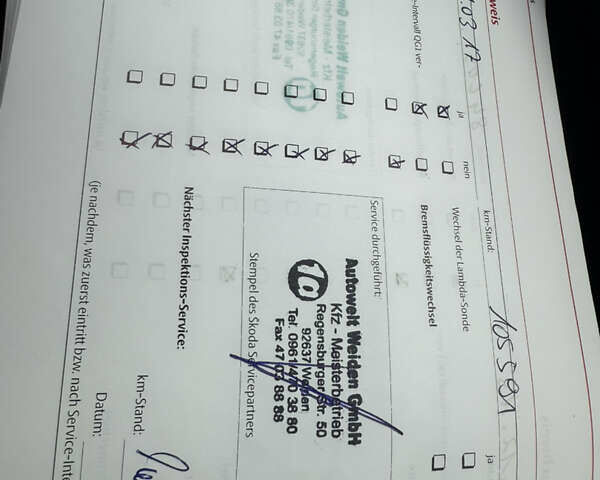 weis
.03 17
km-Stand: 105 591
-Intervall QG1 ver-
ja nein
Wechsel der Lambda-Sonde
ja
Bremsflüssigkeitswechsel
Service durchgeführt:
Autowelt Weiden GmbH
Kfz - Meisterbetrieb
Regensburger Str. 50
92637 Weiden
Tel. 0961/470 38 80
Fax 47 03 88 88
1a
Stempel des Škoda Servicepartners
Nächster Inspektions-Service:
km-Stand:
Datum:
(je nachdem, was zuerst eintritt bzw. nach Service-Inte